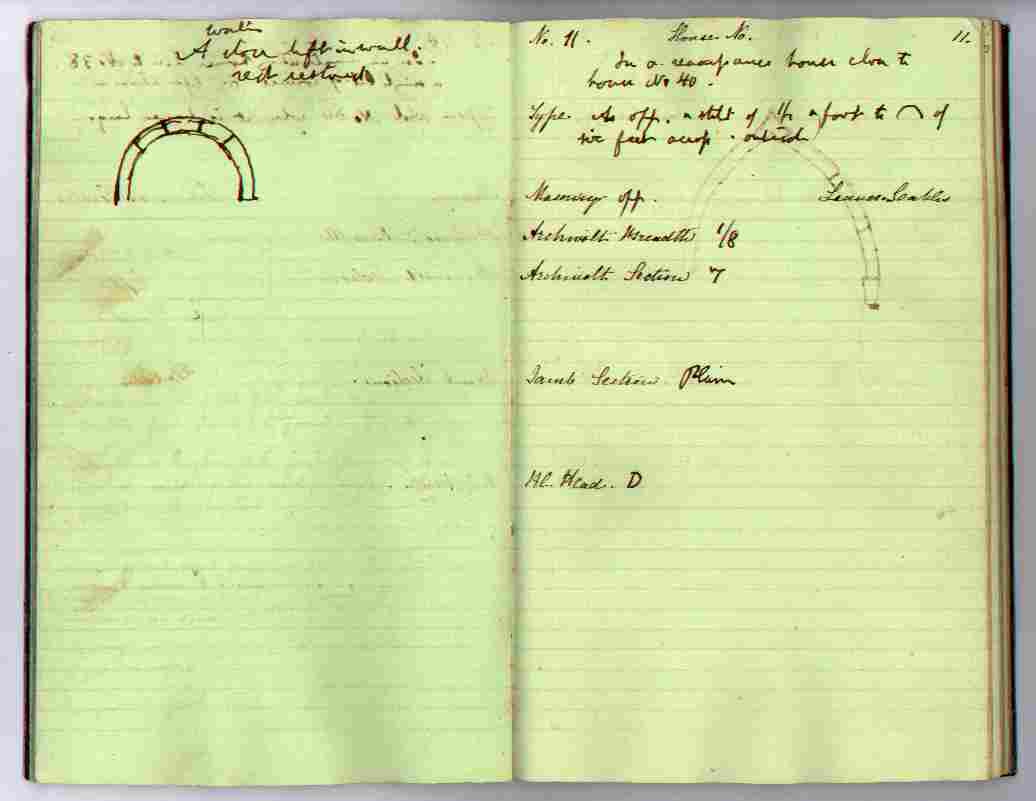 A door left in wall.
rest restored
No. 11. House No. 11.
In a house close to
house No 40.
Type. As opp. a stilt of 1/2 a foot to ⌒ of
six feet across. outside
Masonry opp.
Archivolt Breadth 1/8
Archivolt Section 7
Jamb Section. Plain
Head. D